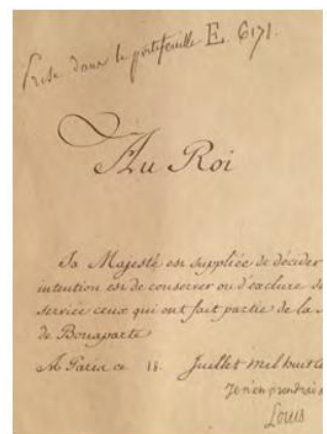 Prise dans le portefeuille E. 6171.
Au Roi
Sa Majesté est suppliée de décider
intention est de conserver ou d'exclure
service ceux qui ont fait partie de la
de Bonaparte
A Paris ce 18. Juillet mil huit
Je n'en prendrai
Louis